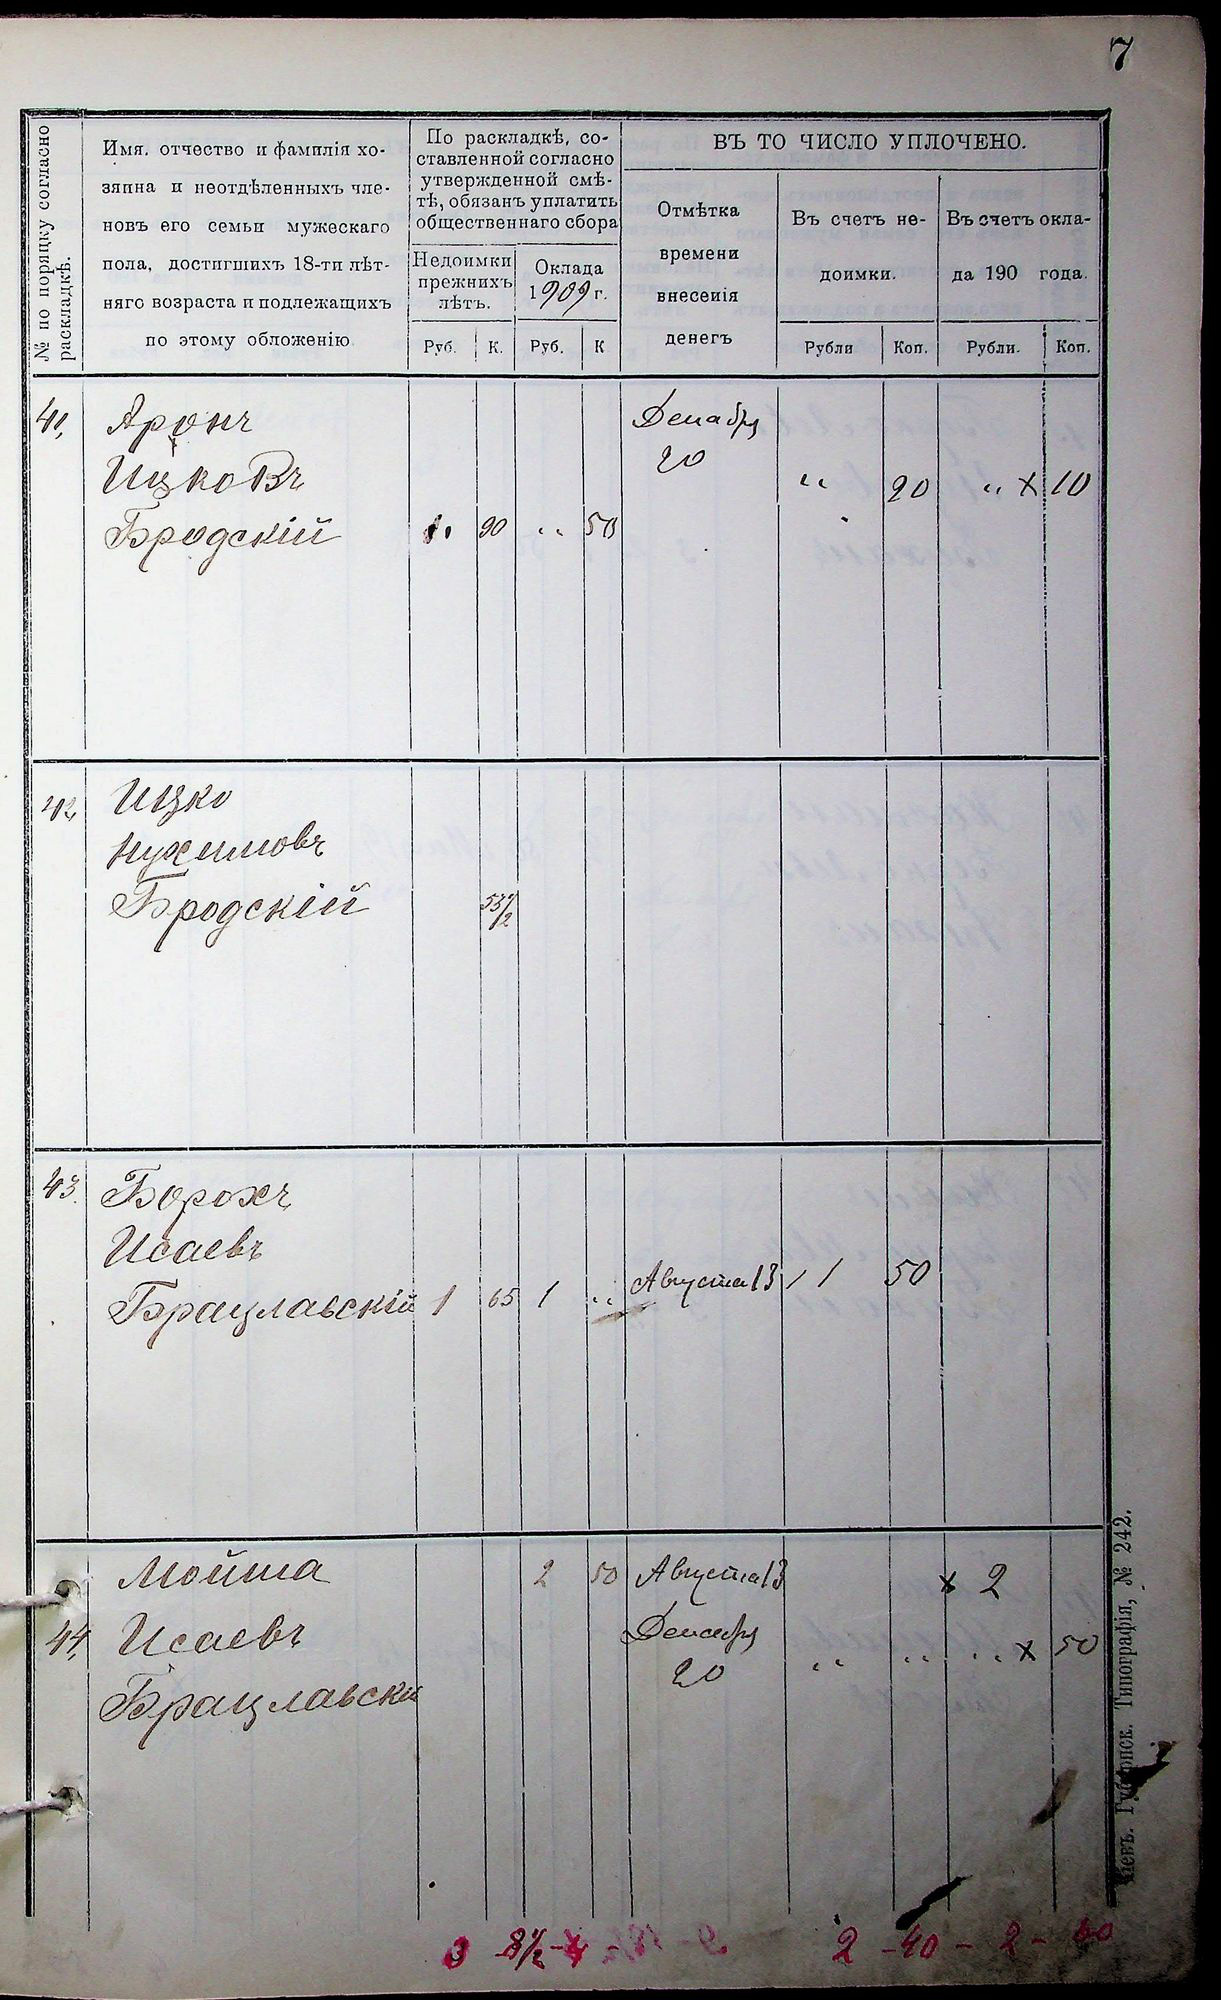 7
№ по порядку согласно
раскладкѣ.
Имя, отчество и фамилія хо-
зяина и неотдѣленныхъ чле-
новъ его семьи мужескаго
пола, достигшихъ 18-ти лѣт-
няго возраста и подлежащихъ
по этому обложенію
По раскладкѣ, со-
ставленной согласно
утвержденной смѣ-
тѣ, обязанъ уплатить
общественнаго сбора
Недоимки
прежнихъ
лѣтъ.
Оклада
1909 г.
Руб. К. Руб. К
ВЪ ТО ЧИСЛО УПЛОЧЕНО.
Отмѣтка
времени
внесенія
денегъ
Въ счетъ не-
доимки.
Рубли Коп.
Въ счетъ окла-
да 190 года.
Рубли. Коп.
41, Аронъ Декабря
Ицковъ 20 " 20 " х 10
Бродскій 1. 90 " 50
42, Ицко
Нухимовъ
Бродскій 53 1/2
43. Борохъ
Исаевъ
Брацлавскій 1 65 1 " Августа 13 1 50
Мойша 2 50 Августа 13 х 2
44, Исаевъ Декабря " " " х 50
Брацлавски 20
3 8 1/2 - 4 2 - 40 - 2 - 60
Кіевъ. Губернск. Типографія, № 242.